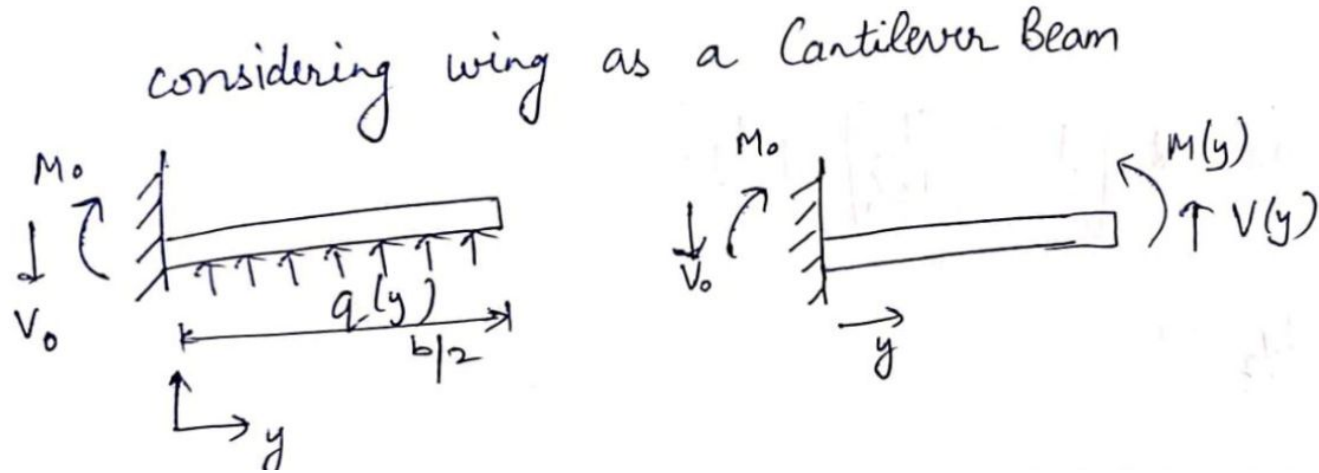 considering wing as a Cantilever Beam
M₀
V₀
q(y)
b/2
y
M₀
V₀
M(y)
V(y)
y